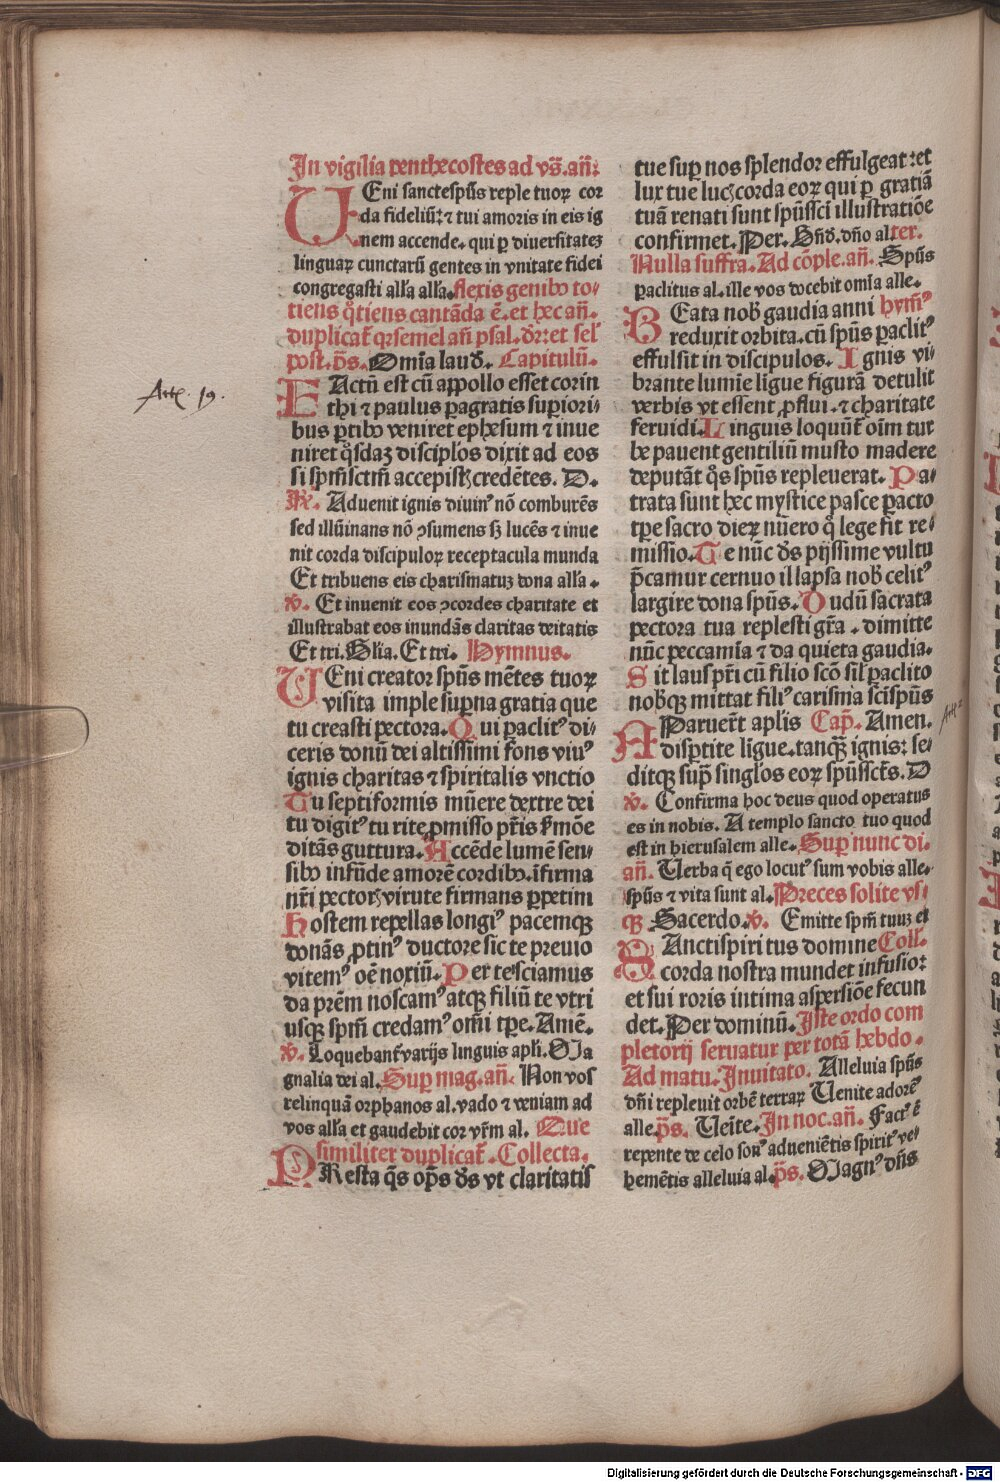 In vigilia penthecostes ad vs̄. an̄:
VEni sancte sp̄us reple tuoꝝ cor
da fideliū: ⁊ tui amoris in eis ig
nem accende. qui ꝑ diuersitateꝫ
linguaꝝ cunctarū gentes in vnitate fidei
congregasti all'a all'a. flexis genibꝰ to⸗
tiens qͦtiens cantāda ē. et hec an̄.
duplicat̄ qꝛ semel an̄ psal. ꝺꝛ: et sel'
post. p̄s. Om̄ia lauꝺ. Capitulū.
FActū est cū appollo esset corin
thi ⁊ paulus ꝑagratis suꝑiori⸗
bus ꝑtibꝰ veniret ephesum ⁊ inue
niret qͦsdaꝫ discipl'os dixit ad eos
si sp̄m sctm̄ accepistꝫ credētes. D.
℟. Aduenit ignis diuinꝰ nō comburēs
sed illūinans nō ꝯsumens sꝫ lucēs ⁊ inue
nit corda discipuloꝝ receptacula munda
Et tribuens eis charismatuꝫ dona all'a.
℣. Et inuenit eos ꝯcordes charitate et
illustrabat eos inundās claritas deitatis
Et tri. Gl'ia. Et tri. Hymnus.
VEni creator sp̄us mētes tuoꝝ
visita imple suꝑna gratia que
tu creasti pectora. Qui ꝑaclitꝰ di⸗
ceris donū dei altissimi fons viuꝰ
ignis charitas ⁊ spiritalis vnctio
Tu septiformis mūere dextre dei
tu digitꝰ tu rite ꝓmisso pr̄is ẜmōe
ditās guttura. Accēde lumē sen⸗
sibꝰ infūde amorē cordibꝰ. īfirma
nr̄i pectorꝫ virute firmans ꝑpetim
Hostem repellas longiꝰ pacemqꝫ
donās ꝓtinꝰ ductore sic te preuio
vitemꝰ oē noxiū. Per te sciamus
da prēm noscamꝰ atqꝫ filiū te vtri
usqꝫ sp̄m credamꝰ om̄i tꝑe. Amē.
℣. Loquebant̄ varijs linguis apl'i. Ma
gnalia dei al. Suꝑ mag. an̄. Non vos
relinquā orphanos al. vado ⁊ veniam ad
vos all'a et gaudebit cor vr̄m al. Que
similiter duplicat̄. Collecta.
PResta q̄s op̄s ꝺs vt claritatis
tue suꝑ nos splendor effulgeat: et
lux tue lucꝫ corda eoꝝ qui ꝑ gratiā
tuā renati sunt sp̄ussci illustratiōe
confirmet. Per. Bn̄ꝺ. dn̄o al. ter.
Nulla suffra. Ad cōple. an̄. Sp̄us
ꝑaclitus al. ille vos docebit om̄ia alle.
BEata nob̄ gaudia anni hym̄ꝰ
reduxit orbita. cū sp̄us ꝑaclitꝰ
effulsit in discipulos. Ignis vi⸗
brante lumīe ligue figurā detulit
verbis vt essent ꝓflui. ⁊ charitate
feruidi. Linguis loquūt̄ oīm tur
be pauent gentiliū musto madere
deputāt qͦs sp̄us repleuerat. Pa⸗
trata sunt hec mystice pasce ꝑacto
tꝑe sacro dieꝝ nūero qͦ lege fit re⸗
missio. Te nūc ꝺs pijssime vultu
p̄camur cernuo illapsa nob̄ celitꝰ
largire dona sp̄us. Dudū sacrata
pectora tua replesti gr̄a. dimitte
nūc peccamīa ⁊ da quieta gaudia.
Sit laus pr̄i cū filio scō sil' ꝑaclito
nob̄qꝫ mittat filiꝰ carisma sc̄i sp̄us
APparuer̄t ap̄lis Cap̄. Amen.
disꝑtite ligue. tanqꝫ ignis: se⸗
ditqꝫ sup̄ singl'os eoꝝ sp̄uss̄cts. D
℣. Confirma hoc deus quod operatus
es in nobis. A templo sancto tuo quod
est in hierusalem alle. Suꝑ nunc di⸗
an̄. Verba q̄ ego locutꝰ sum vobis alle.
sp̄us ⁊ vita sunt al. Preces solite vs⸗
qꝫ Sacerdo. ℣. Emitte sp̄m tuuꝫ et
SAncti spiritus domine Coll'.
corda nostra mundet infusio:
et sui roris intima aspersiōe fecun
det. Per dominū. Iste ordo com
pletorij seruatur per totā hebdo.
Ad matu. Inuitato. Alleluia sp̄us
dn̄i repleuit orbē terraꝝ Venite adorēꝰ
alle. p̄s. Veīte. In noc. an̄. Factꝰ ē
repente de celo sonꝰ adueniētis spiritꝰ ve⸗
hemētis alleluia al. p̄s. Magnꝰ dn̄s
Act. 19.
Act. 2
Digitalisierung gefördert durch die Deutsche Forschungsgemeinschaft - DFG